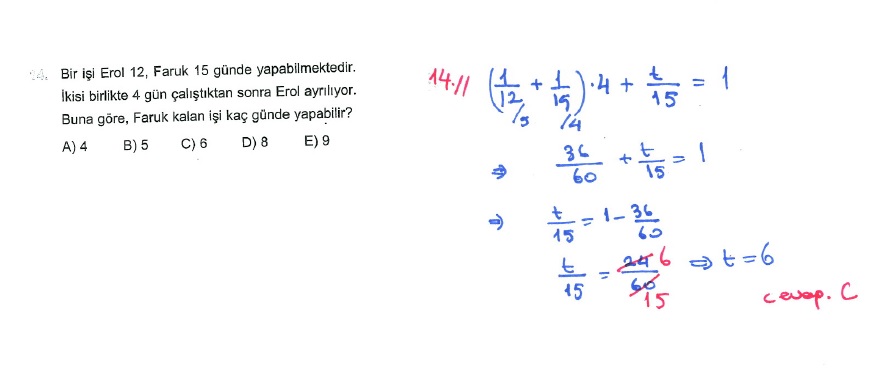 14. Bir işi Erol 12, Faruk 15 günde yapabilmektedir.
İkisi birlikte 4 gün çalıştıktan sonra Erol ayrılıyor.
Buna göre, Faruk kalan işi kaç günde yapabilir?
A) 4 B) 5 C) 6 D) 8 E) 9
14.// (1/12 + 1/15) · 4 + t/15 = 1
/5 /4
⇒ 36/60 + t/15 = 1
⇒ t/15 = 1 - 36/60
t/15 = 24/60 6 15 ⇒ t = 6
cevap. C